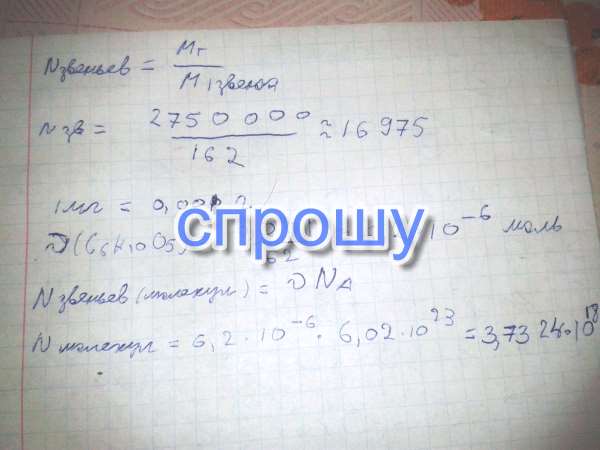 Nзвеньев = Mr / M 1 звена
n зв = 2750000 / 162 ≈ 16975
1мг = 0,001
спрошу
ν(C6H10O5) 10⁻⁶ моль
N звеньев (молекул) = ν NA
N молекул = 6,2 · 10⁻⁶ · 6,02 · 10²³ = 3,7324 · 10¹⁸